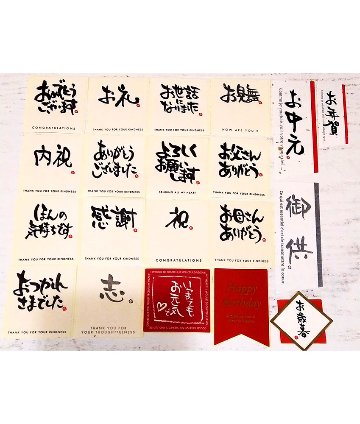 おめでとう
ございます
CONGRATULATIONS
お礼
THANK YOU FOR YOUR KINDNESS
お世話に
なりました
THANK YOU FOR YOUR KINDNESS
お見舞
HOW ARE YOU ?
お中元
お年賀
内祝
THANK YOU FOR YOUR KINDNESS
ありがとう
ございました
THANK YOU FOR YOUR KINDNESS
よろしく
お願い
します
お父さん
ありがとう
THANK YOU FOR YOUR KINDNESS
御供
ほんの
気持ちです
THANK YOU FOR YOUR KINDNESS
感謝
THANK YOU FOR YOUR KINDNESS
祝
CONGRATULATIONS
お母さん
ありがとう
THANK YOU FOR YOUR KINDNESS
おつかれ
さまでした
THANK YOU FOR YOUR KINDNESS
志
THANK YOU FOR
YOUR THOUGHTFULNESS
いつまでも
お元気で
Happy
Birthday
お歳暮